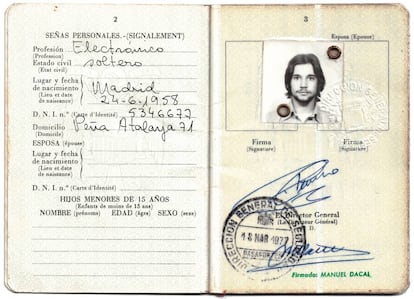 2
SEÑAS PERSONALES.-(SIGNALEMENT)
Profesión Electrónico
(Profession)
Estado civil soltero
(Etat civil)
Lugar y fecha
de nacimiento Madrid
(Lieu et date
de naissance) 24-6-1958
D. N. I. nº (Carte d'Identité) 5346672
Domicilio Peña Atalaya 71
(Domicile)
ESPOSA (épouse)
Lugar y fecha
de nacimiento
(Lieu et date
de naissance)
D. N. I. nº (Carte d'Identité)
HIJOS MENORES DE 15 AÑOS
(Enfants de moins de 15 ans)
NOMBRE (prénoms) EDAD (âges) SEXO (sexe)
3
Esposa (Epouse)
Firma
(Signature)
Firma
(Signature)
El Director General
(Le Directeur Général)
D.
DIRECCION GENERAL DE
18 MAR 1977
PASAPORTES
Firmado: MANUEL DACAL